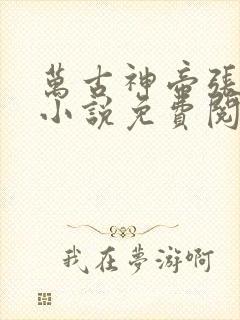 萬古神帝張
小說免費閱
我在夢游啊